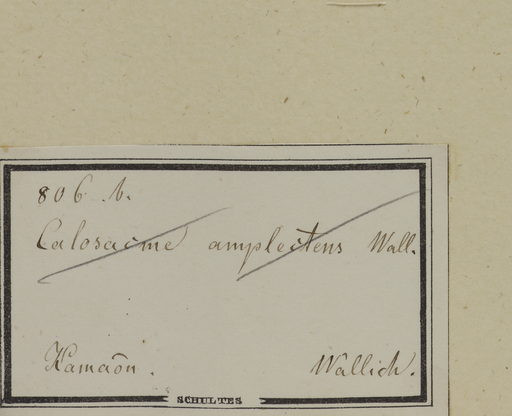 806 b.
Calosacme amplectens Wall.
Kamaôn.
Wallich.
SCHULTES